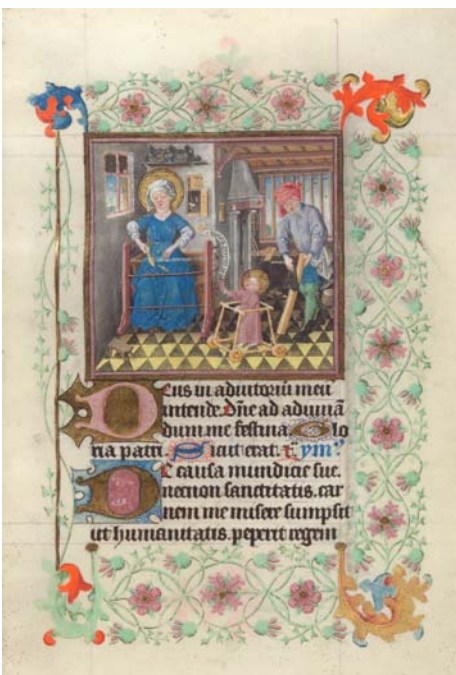 Deus in adiutoriū meū
intende. Dn̄e ad adiuuā
dum me festina. Glo
ria patri. Sicut erat. ym̄
De causa mundicie sue.
necnon sanctitatis. car
nem me misere sumpsit
ut humanitatis. peperit regem